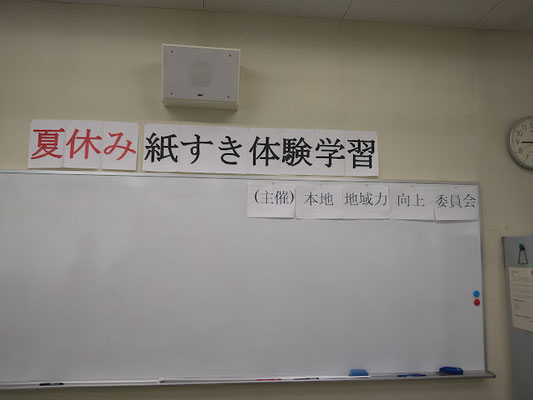 夏休み 紙すき体験学習
(主催) 本地 地域力 向上 委員会